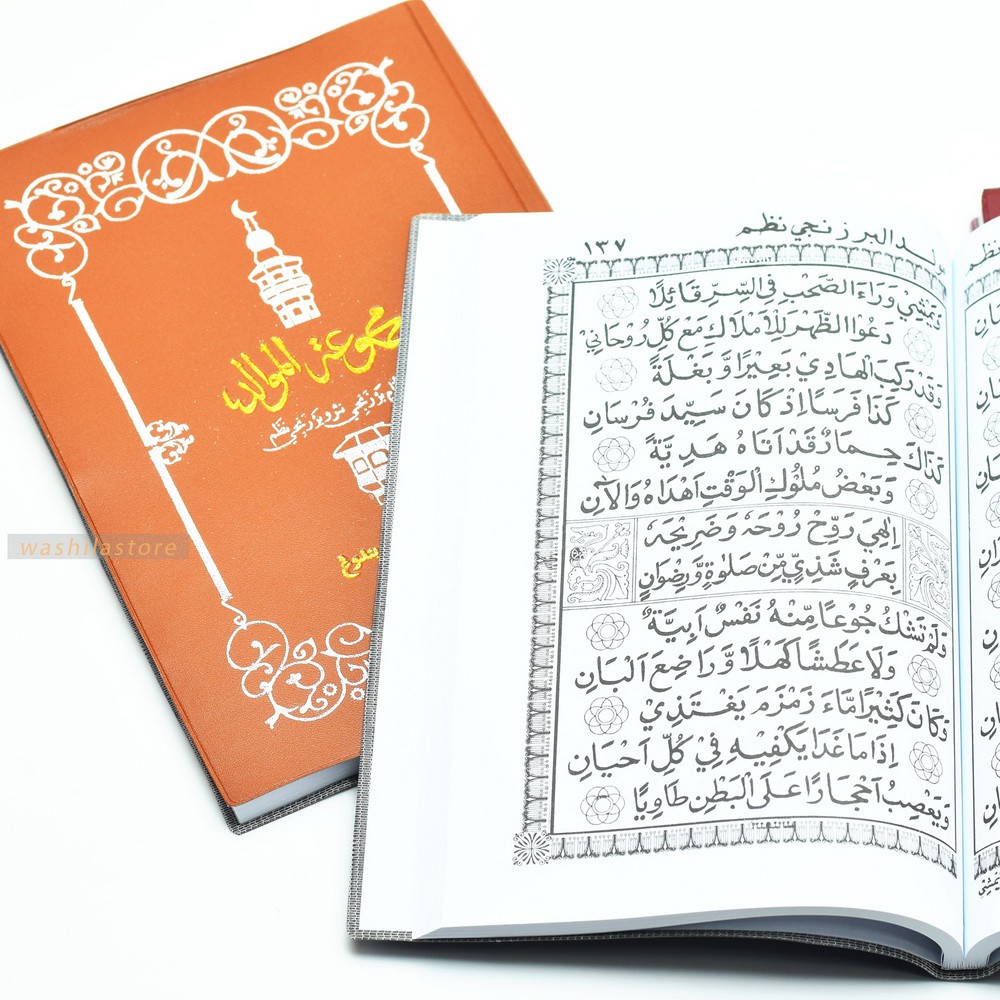 مجموعة الموالد
برزنجي نثر وبرزنجي نظم
washilastore
١٣٧
البرزنجي نظم
وَيَمْشِي وَرَاءَ الصَّحْبِ فِي السِّرِّ قَائِلًا
دَعُوا الظَّهْرَ لِلْأَمْلَاكِ مَعَ كُلِّ رُوْحَانِيْ
وَقَدْ رَكِبَ الْهَادِيْ بَعِيْرًا وَّبَغْلَةً
كَذَا فَرَسًا اِذْ كَانَ سَيِّدَ فُرْسَانِ
كَذَاكَ حِمَارٌ قَدْ اَتَاهُ هَدِيَّةً
وَبَعْضُ مُلُوْكِ الْوَقْتِ اَهْدَاهُ وَالْآنِ
اِلٰهِيْ رَوِّحْ رُوْحَهُ وَضَرِيْحَهُ
بِعَرْفٍ شَذِيٍّ مِّنْ صَلٰوةٍ وَّرِضْوَانٍ
وَلَمْ تَشْكُ جُوْعًا مِّنْهُ نَفْسٌ اَبِيَّةٌ
وَلَا عَطَشًا كَهْلًا وَّرَاضِعَ اَلْبَانِ
وَكَانَ كَثِيْرًا مَّاءَ زَمْزَمَ يَغْتَذِيْ
اِذَا مَا غَدَا يَكْفِيْهِ فِيْ كُلِّ اَحْيَانِ
وَيَعْصِبُ اَحْجَارًا عَلَى الْبَطْنِ طَاوِيًا